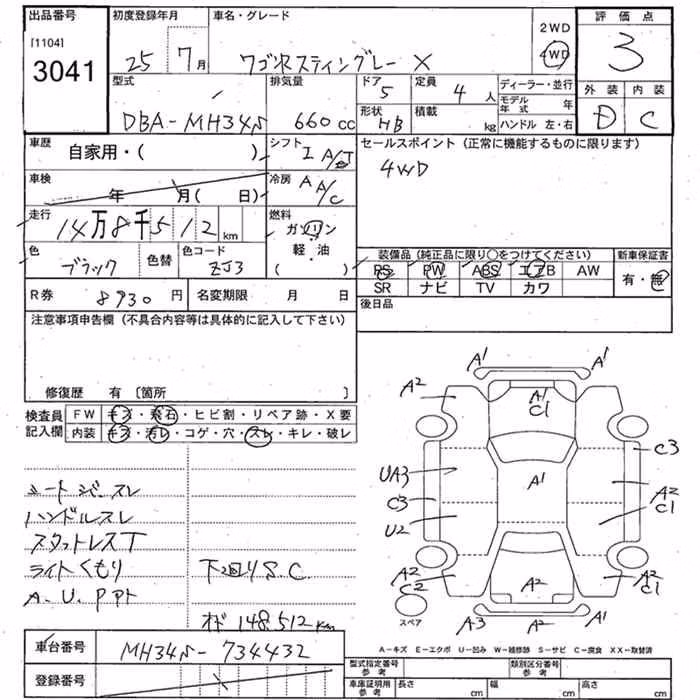 出品番号 初度登録年月 車名・グレード 2WD 評価点
[1104]
3041
25 7月 ワゴンRスティングレー X 4WD 3
型式 排気量 ドア 定員 ディーラー・並行 外装 内装
DBA-MH34S 660cc 5 4人 モデル年式 年 D C
形状 HB 積載 kg ハンドル 左・右
車歴 自家用・( ) シフト I A/T セールスポイント (正常に機能するものに限ります)
4WD
車検 年 月( 日) 冷房 A A/C
走行 14万8千512km 燃料 ガソリン
軽・油
( )
色 ブラック 色替 色コード ZJ3
装備品 (純正品に限り○をつけてください) 新車保証書
PS PW ABS エアB AW 有・無
SR ナビ TV カワ
R券 8930円 名変期限 月 日 後日品
注意事項申告欄 (不具合内容等は具体的に記入して下さい)
修復歴 有 〔箇所 〕
検査員 FW キズ・飛石・ヒビ割・リペア跡・X要
記入欄 内装 キズ・汚レ・コゲ・穴・スレ・キレ・破レ
シートジミスレ
ハンドルスレ
スタットレスT
ライトくもり 下回りS.C.
オド 148,512km
A1 A1
A2 A1 C1 A2
C3
UA3 A1
C3 A2 C1
U2
A2 C2 A2 A2 C1
スペア A3 A2 A1
A-キズ E-エクボ U-凹み W-補修跡 S-サビ C-腐食 XX-取替済
車台番号 MH34S-734432
登録番号
型式指定番号 参考 類別区分番号 参考
車庫証明用 参考 長さ cm 幅 cm 高さ cm